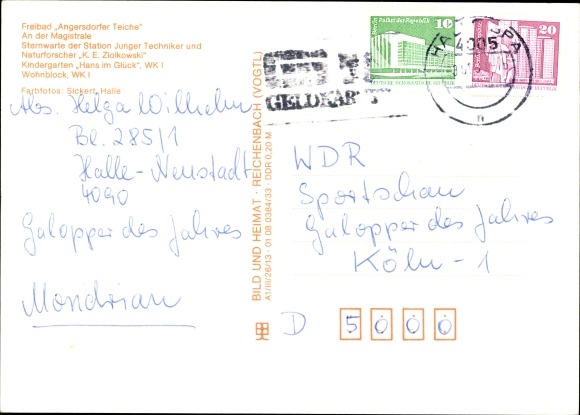 Freibad „Angersdorfer Teiche"
An der Magistrale
Sternwarte der Station Junger Techniker und
Naturforscher „K. E. Ziolkowski"
Kindergarten „Hans im Glück", WK I
Wohnblock, WK I
Farbfotos: Sickert, Halle
Abs. Helga Wilhelm
Bl. 285/1
Halle-Neustadt
4090
Galopper des Jahres
Mondrian
BILD UND HEIMAT · REICHENBACH (VOGTL)
A1/III/26/13 · 01 08 0384/33 · DDR 0,20 M
GELDKART
Berlin, Palast der Republik
10
20
4005
WDR
Sportschau
Galopper des Jahres
Köln - 1
D 5000